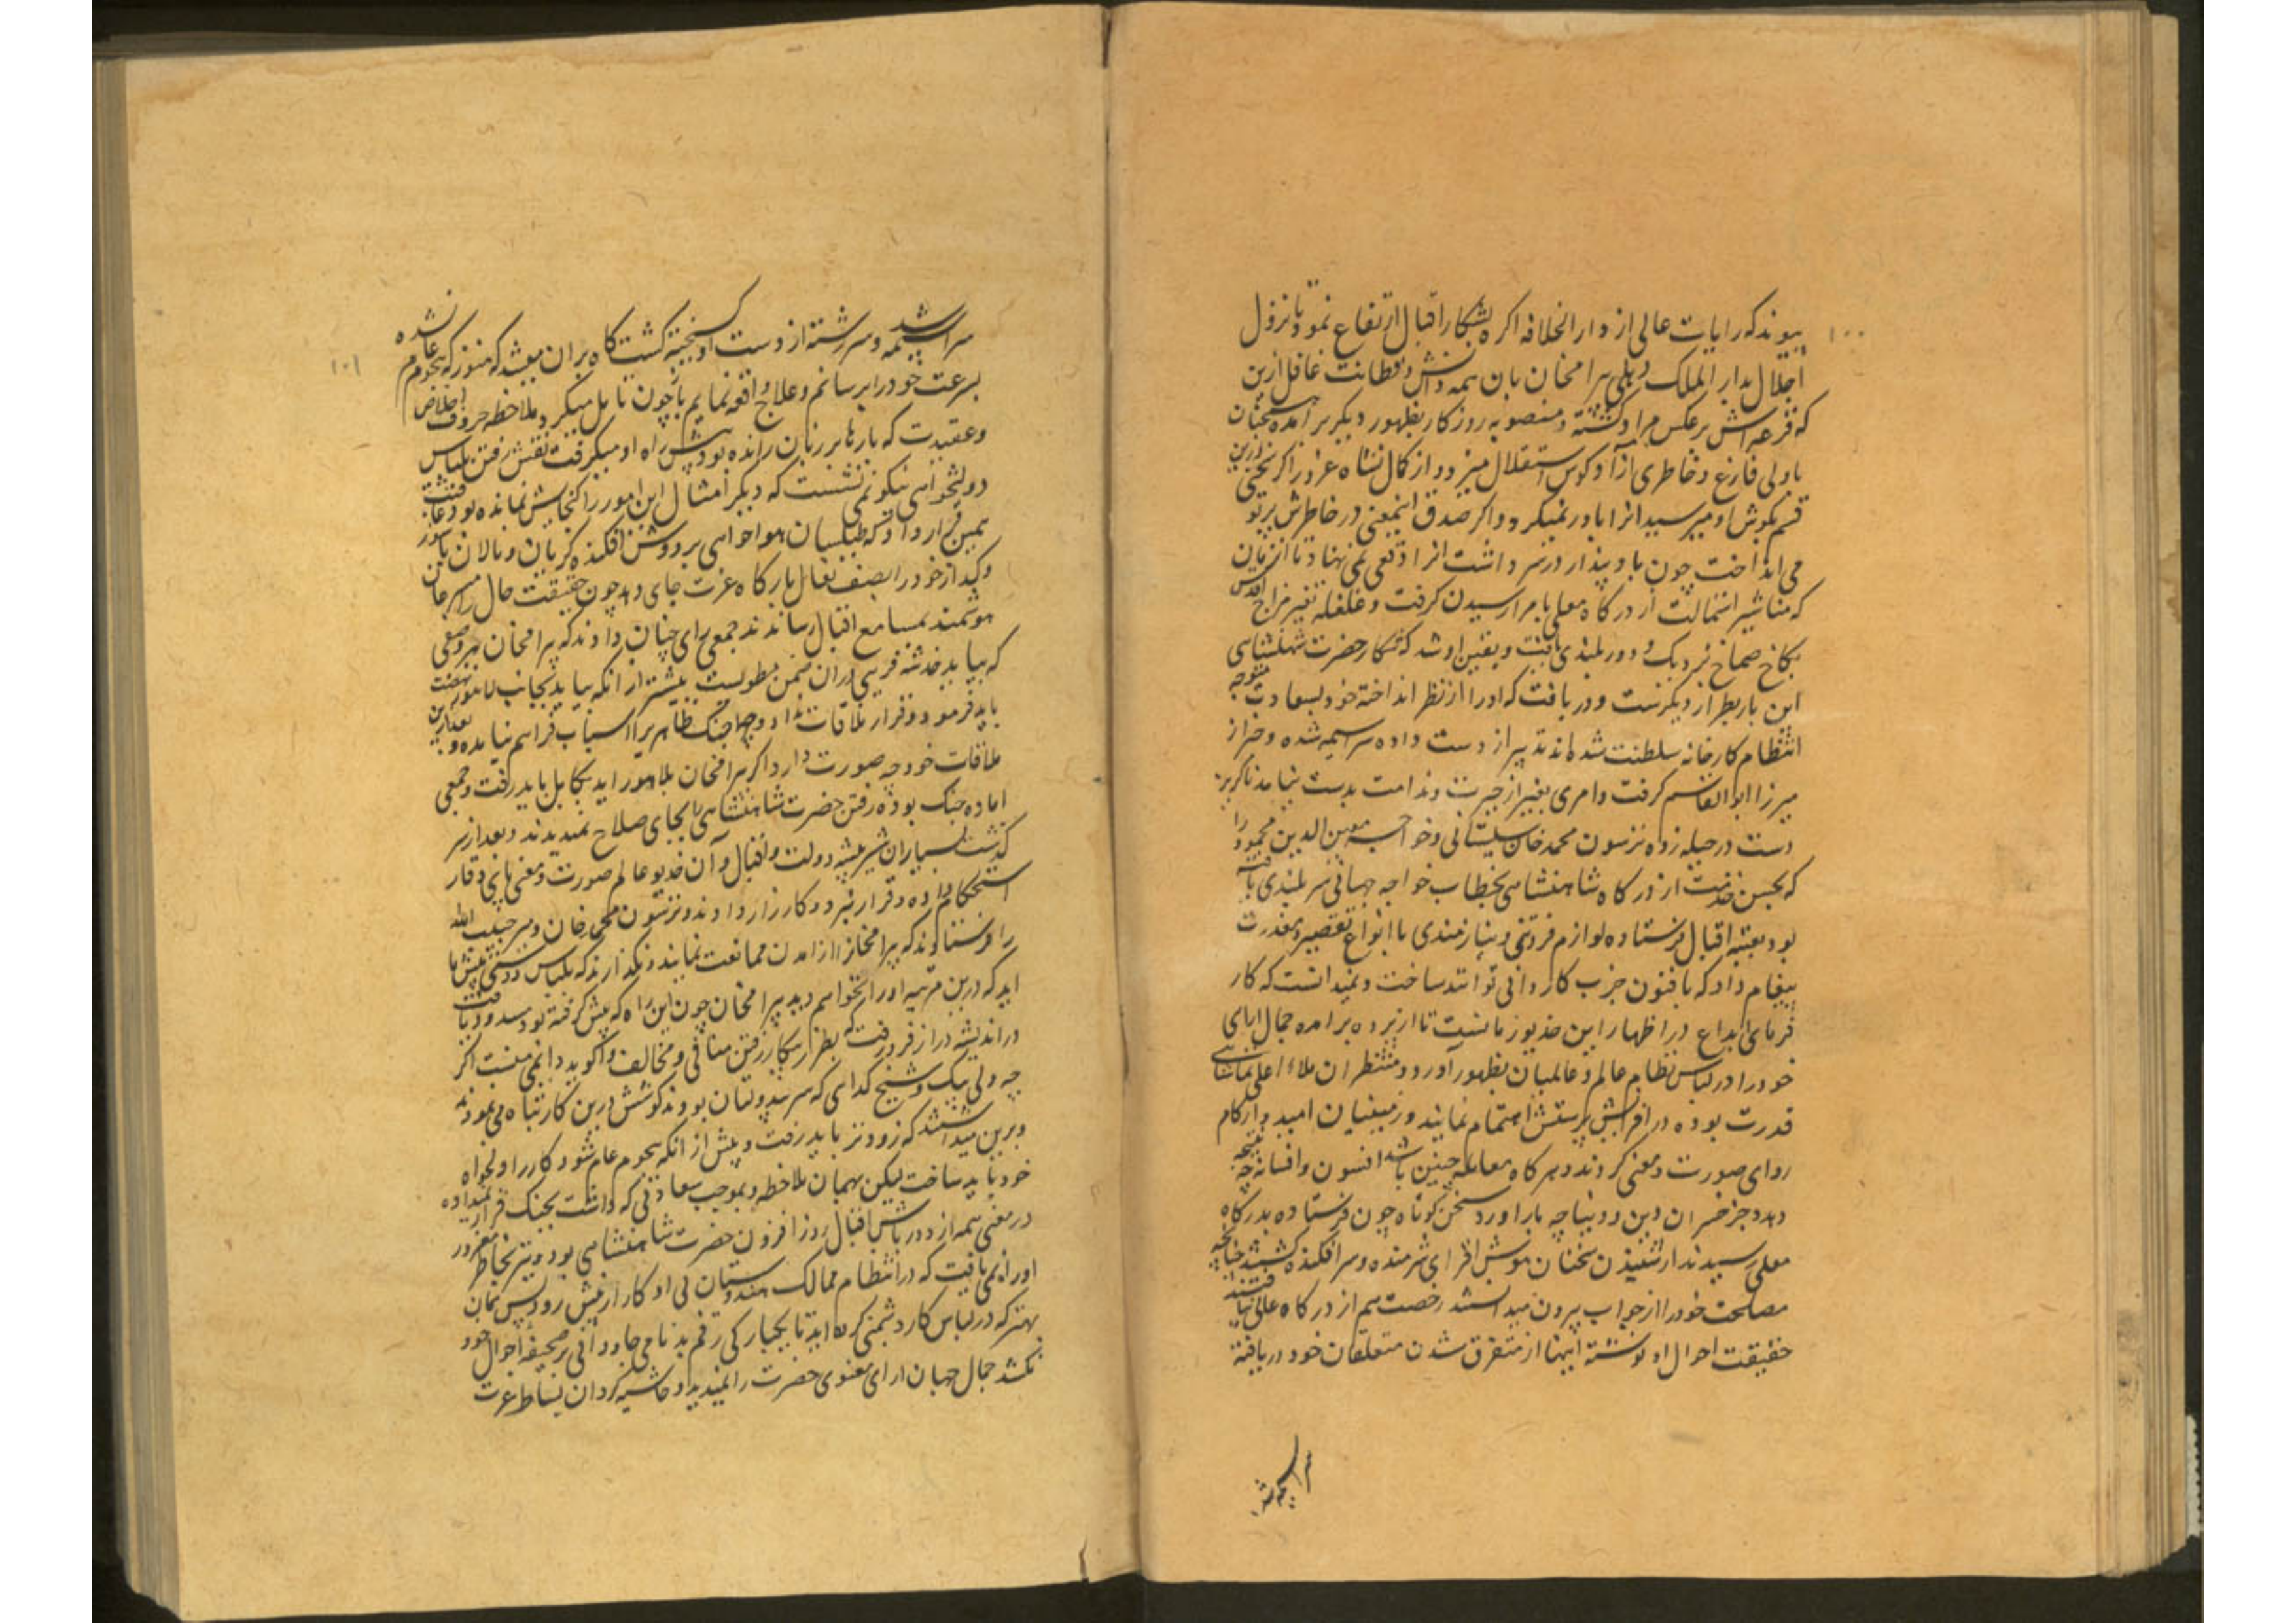 ۱۰۰
پیوند که رایات عالی از دار الخلافه اکره بشکار اقبال ارتفاع نمود تا نزول
اجلال بدار الملک دهلی بیرامخان بان همه دانش و فطانت غافل ازین
که قرعه اش بر عکس مراد کشته و منصوبه روزکار بظهور دیکر برآمده سخنان
باولی فارغ و خاطری آزاد کوس استقلال میزد و از کمال نشاه غرور اکر سخنی ازین
قسم بکوش او میرسید انرا باور نمیکرد و اکر صدق اینمعنی در خاطرش پرتو
می انداخت چون باد پندار در سر داشت انرا وقعی نمی نهاد تا انزمان
که مناشیر استمالت از درکاه معلی بامرا رسیدن کرفت و غلغله تغیر مزاج اقدس
بکاخ صماخ نزدیک و دور بلندی یافت و یقین او شد که شکار حضرت شهنشاهی
این بار بطراز دیکرست و دریافت که اورا از نظر انداخته خود بسعادت متوجه
انتظام کارخانه سلطنت شده اند تدبیر از دست داده سراسیمه شده و خبر از
میرزا ابو القاسم کرفت و امری بغیر از حیرت و ندامت بدست نیامد ناکزیر
دست در حیله زده ترسون محمد خان سیستانی و خواجه معین الدین محمود را
که بحسن خدمت از درکاه شاهنشاهی بخطاب خواجه جهانی سر بلندی یافته
بود بعتبه اقبال فرستاده لوازم فروتنی و نیازمندی با انواع تقصیر و معذرت
پیغام داد که با فنون جرب کار دانی تواند ساخت و نمیدانست که کار
فرمای ابداع در اظهار این خدیو زمانست تا از پرده برامده جمال ارای
خود را در لباس نظام عالم و عالمیان بظهور آورد و منتظران ملاء اعلی تماشای
قدرت بوده در افزایش پرستش اهتمام نمایند و زمینیان امید وار کام
روای صورت و معنی کردند و هر کاه معامله چنین باشد افسون و افسانه چه نتیجه
دهد و جز خسران دین و دنیا چه بار اورد سخن کوتاه چون فرستاده بدرکاه
معلی رسیدند از شنیدن سخنان هوش افزای شرمنده و سر افکنده کشتند چنانچه
مصلحت خود را از جواب بیرون میدانستند رخصت هم از درکاه عالی نیافتند
حقیقت احوال او نوشته اینها از متفرق شدن متعلقان خود دریافته
سراسیمه شد
۱۰۱
سراسیمه شد و سر رشته از دست او کسیخته کشت کاه بران میشد که هنوز که هجوم عام نشده
بسرعت خود را برسانم و علاج واقعه نمایم باز چون تامل میکرد و ملاحظه حروف اخلاص
و عقیدت که بارها بر زبان رانده بود پیش راه او میکرفت نقش رفتن بلباس
دولتخواهی نیکو نمی نشست که دیکر امثال این امور را کنجایش نمانده بود
همین قرار داد که طیلسان هواخواهی بر دوش افکنده کریان و نالان
خود را بصف نعال بارکاه عزت جای دهد چون حقیقت حال را
هوشمند بمسامع اقبال رساندند جمعی رای چنان دادند که بیرامخان بهر وضعی
که بیاید خدشه فریبی دران ضمن مطویست پیشتر از انکه بیاید بجانب لاهور نهضت
باید فرمود و قرار ملاقات نداد و جنک ظاهرا اسباب فراهم نیامده و بعد ازین
ملاقات خود چه صورت دارد اکر بیرامخان بلاهور اید بکابل باید رفت و جمعی
اماده جنک بوده رفتن حضرت شاهنشاهی بجای صلاح نمیدیدند و بعد از سر
کذشت بسیاران شیر بیشه دولت و اقبال و آن خدیو عالم صورت و معنی پای وقار
استحکام داده و قرار نبرد و کارزار دادند و ترسون محمد خان و میر حبیب الله
را فرستادند که بیرامخانرا از امدن ممانعت نمایند و نکذارند که بلباس دوستی پیش ما
اید که درین مرتبه اورا نخواهم دید بیرامخان چون این راه که پیش کرفته بود مسدود یافت
در اندیشه دراز فرو رفت که بطرز بیکار رفتن منافی و مخالف واکوید دانمی منست اکر
چه ولی بیک و شیخ کدای که سر بیدولتان بودند کوشش درین کار تباه می نمودند
و برین میداشتند که زودتر باید رفت و پیش از انکه هجوم عام شود کار را دلخواه
خود باید ساخت لیکن بهمان ملاحظه و بموجب سعادتی که داشت بجنک قرار نمیداده
در معنی همه از دورباش اقبال روز افزون حضرت شاهنشاهی بود و نیز بخاطر مغرور
اورا نمی یافت که در انتظام ممالک هندوستان بی او کار از پیش رود پس همان
بهتر که در لباس کار دشمنی کرده اید تا بیکبارکی رقم بد نامی جاودانی بر صحیفه احوال خود
نکشد جمال جهان ارای معنوی حضرت را نمیدید و حاشیه کردان بساط عزت